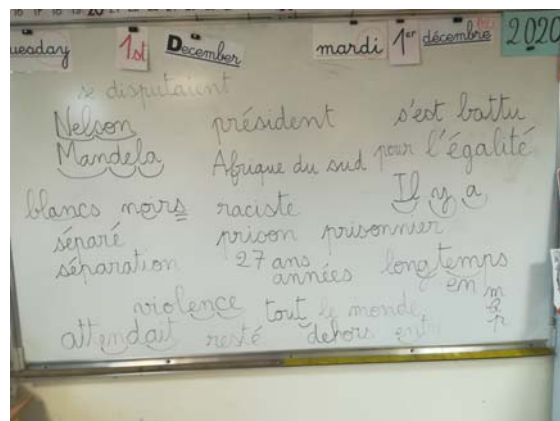 Tuesday 1st December mardi 1er décembre 2020
se disputaient
Nelson président s'est battu
Mandela Afrique du sud pour l'égalité
blancs noirs raciste Il y a
séparé prison prisonnier
séparation 27 ans longtemps
années en m
violence tout le monde b
attendait resté dehors entre p